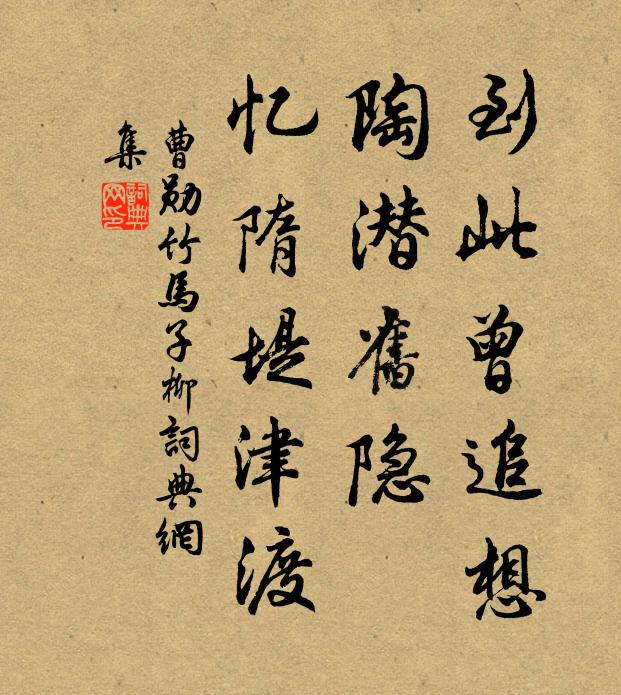 到此曾追想
陶潜舊隐
忆隋堤津渡
曹勋竹馬子柳詞典網
集
詞典网印